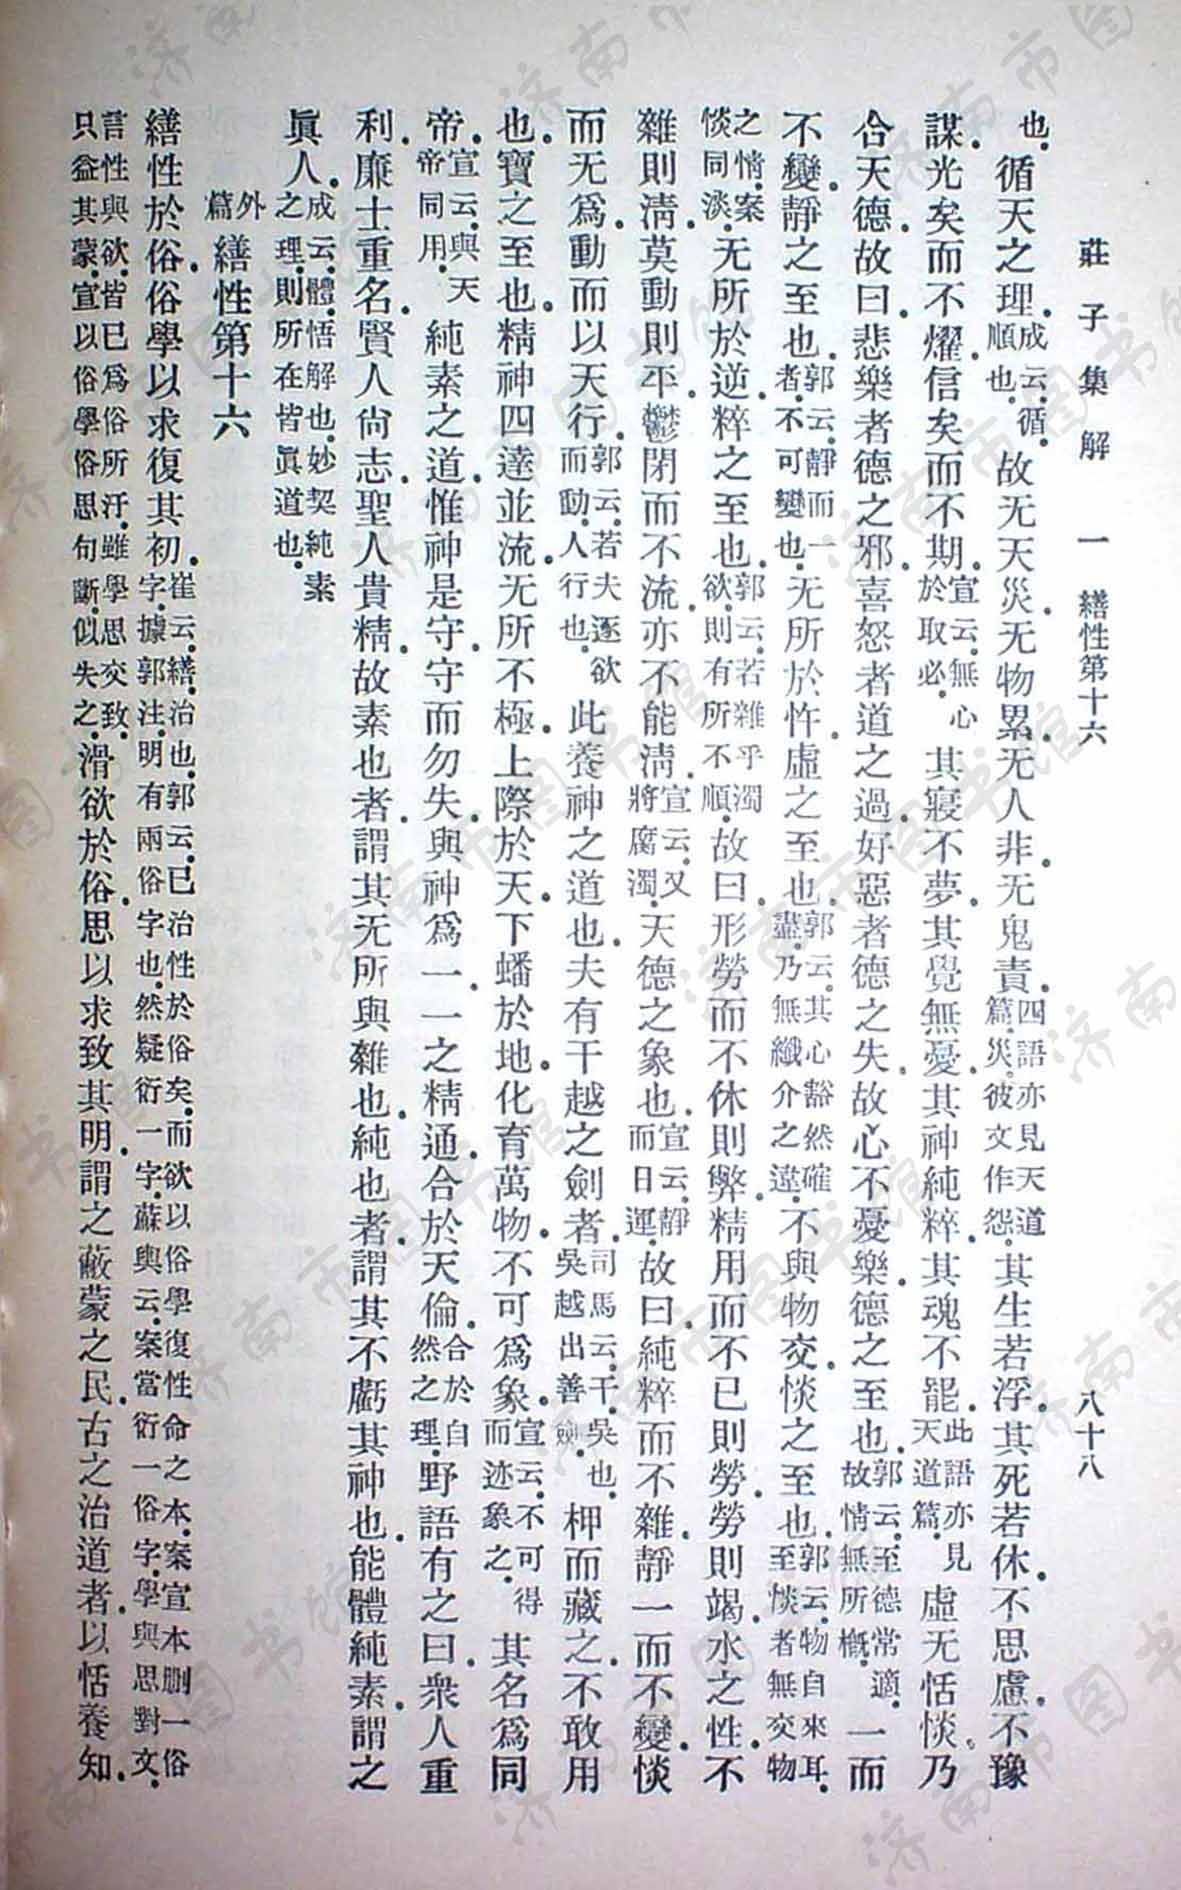 莊子集解　一　繕性第十六　八十八
也。循天之理。成云。循。順也。故无天災。无物累。无人非。无鬼責。四語亦見天道篇。災。彼文作怨。其生若浮。其死若休。不思慮。不豫
謀。光矣而不燿。信矣而不期。宣云。無心於取必。其寢不夢。其覺無憂。其神純粹。其魂不罷。此語亦見天道篇。虛无恬惔。乃
合天德。故曰。悲樂者德之邪。喜怒者道之過。好惡者德之失。故心不憂樂。德之至也。郭云。至德常適。故情無所概。一而
不變。靜之至也。郭云。靜而一者。不可變也。无所於忤。虛之至也。郭云。其心豁然確盡。乃無纖介之違。不與物交。惔之至也。郭云。物自來耳。至惔者無交物
之情。案惔同淡。无所於逆。粹之至也。郭云。若雜乎濁欲。則有所不順。故曰。形勞而不休則弊。精用而不已則勞。勞則竭。水之性。不
雜則清。莫動則平。鬱閉而不流。亦不能清。宣云。又將腐濁。天德之象也。宣云。靜而日運。故曰。純粹而不雜。靜一而不變。惔
而无爲。動而以天行。郭云。若夫逐欲而動。人行也。此養神之道也。夫有干越之劍者。司馬云。干。吳也。吳越出善劍。柙而藏之。不敢用
也。寶之至也。精神四達並流。无所不極。上際於天。下蟠於地。化育萬物。不可爲象。宣云。不可得而迹象之。其名爲同
帝。宣云。與天帝同用。純素之道。惟神是守。守而勿失。與神爲一。一之精通。合於天倫。合於自然之理。野語有之曰。衆人重
利。廉士重名。賢人尙志。聖人貴精。故素也者。謂其无所與雜也。純也者。謂其不虧其神也。能體純素。謂之
眞人。成云。體。悟解也。妙契純素之理。則所在皆眞道也。
外篇　繕性第十六
繕性於俗。俗學以求復其初。崔云。繕。治也。郭云。已治性於俗矣。而欲以俗學復性命之本。案宣本刪一俗字。據郭注。明有兩俗字也。然疑衍一字。蘇輿云。案當衍一俗字。學與思對文。
言性與欲。皆已爲俗所汙。雖學思交致。只益其蒙。宣以俗學俗思句斷。似失之。滑欲於俗。思以求致其明。謂之蔽蒙之民。古之治道者。以恬養知。
济南市图书馆